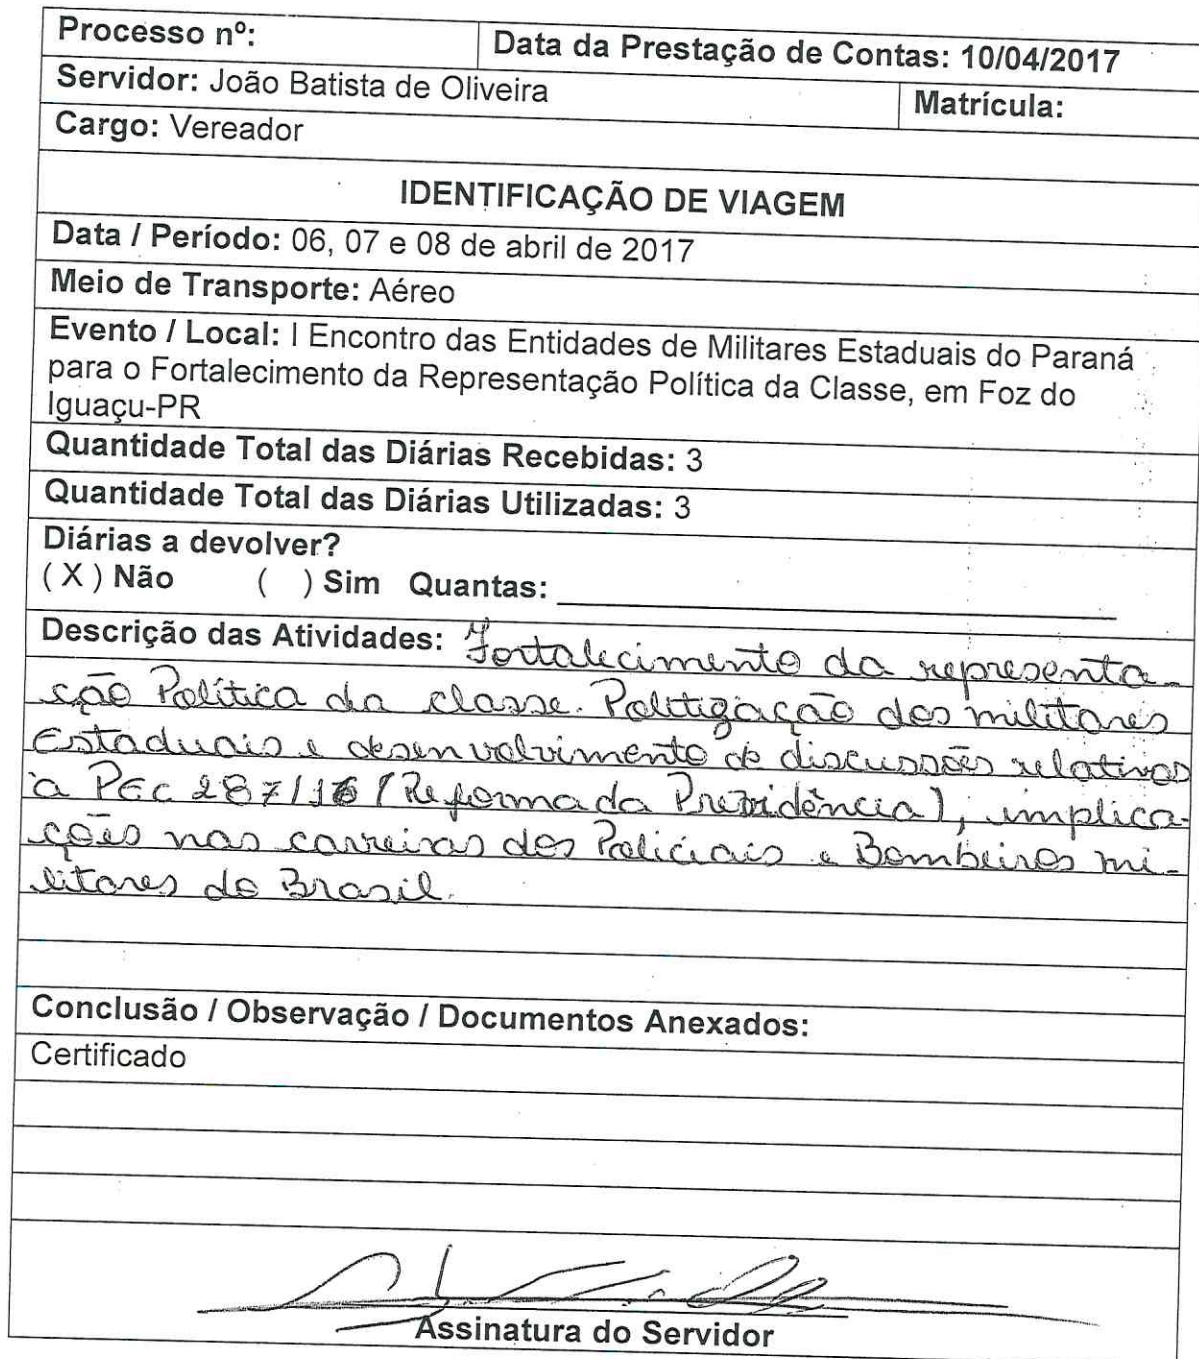 Processo nº: Data da Prestação de Contas: 10/04/2017
Servidor: João Batista de Oliveira Matrícula:
Cargo: Vereador
IDENTIFICAÇÃO DE VIAGEM
Data / Período: 06, 07 e 08 de abril de 2017
Meio de Transporte: Aéreo
Evento / Local: I Encontro das Entidades de Militares Estaduais do Paraná
para o Fortalecimento da Representação Política da Classe, em Foz do
Iguaçu-PR
Quantidade Total das Diárias Recebidas: 3
Quantidade Total das Diárias Utilizadas: 3
Diárias a devolver?
( X ) Não ( ) Sim Quantas:
Descrição das Atividades: Fortalecimento da representa-
ção Política da classe. Politização dos militares
Estaduais e desenvolvimento de discussões relativas
à PEC 287/16 (Reforma da Previdência), implica-
ções nas carreiras dos Policiais e Bombeiros mi-
litares do Brasil.
Conclusão / Observação / Documentos Anexados:
Certificado
Assinatura do Servidor